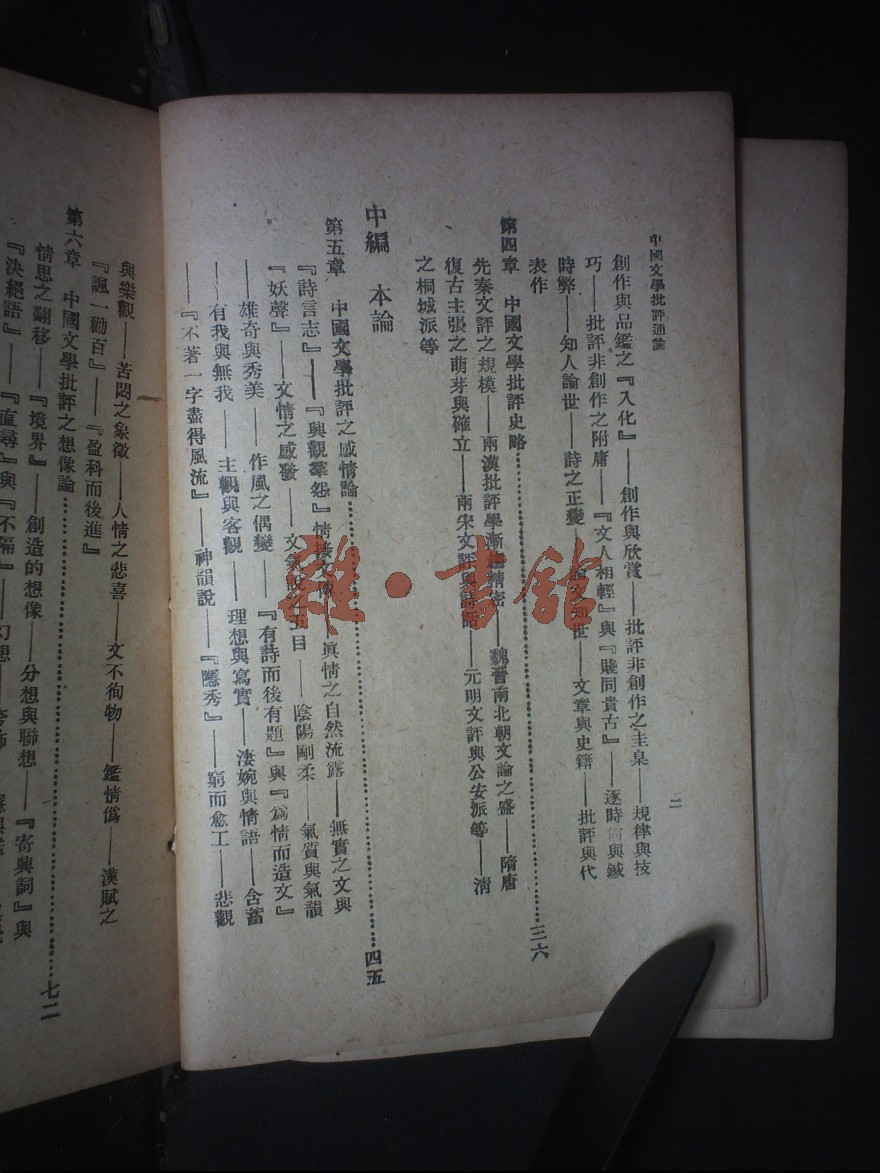 中國文學批評通論
二
創作與品鑑之『入化』——創作與欣賞——批評非創作之圭臬——規律與技
巧——批評非創作之附庸——『文人相輕』與『賤同貴古』——逐時尚與鍼
時弊——知人論世——詩之正變——文知世——文章與史籍——批評與代
表作
第四章 中國文學批評史略…………三六
先秦文評之規模——兩漢批評學漸趨精密——魏晉南北朝文論之盛——隋唐
復古主張之萌芽與確立——兩宋文評與詩話——元明文評與公安派等——清
之桐城派等
中編 本論
第五章 中國文學批評之感情論…………四五
『詩言志』——『興觀羣怨』情接文——眞情之自然流露——無實之文與
『妖聲』——文情之感發——文氣說之五目——陰陽剛柔——氣質與氣韻
——雄奇與秀美——作風之偶變——『有詩而後有題』與『爲情而造文』
——有我與無我——主觀與客觀——理想與寫實——淒婉與情語——含蓄
——『不著一字盡得風流』——神韻說——『隱秀』——窮而愈工——悲觀
與樂觀——苦悶之象徵——人情之悲喜——文不徇物——鑑情僞——漢賦之
『諷一勸百』——『盈科而後進』
第六章 中國文學批評之想像論…………七二
情思之翻移——『境界』——創造的想像——分想與聯想——『寄興詞』與
『決絕語』——『直尋』與『不隔』——幻想——夸飾——
雜·書館